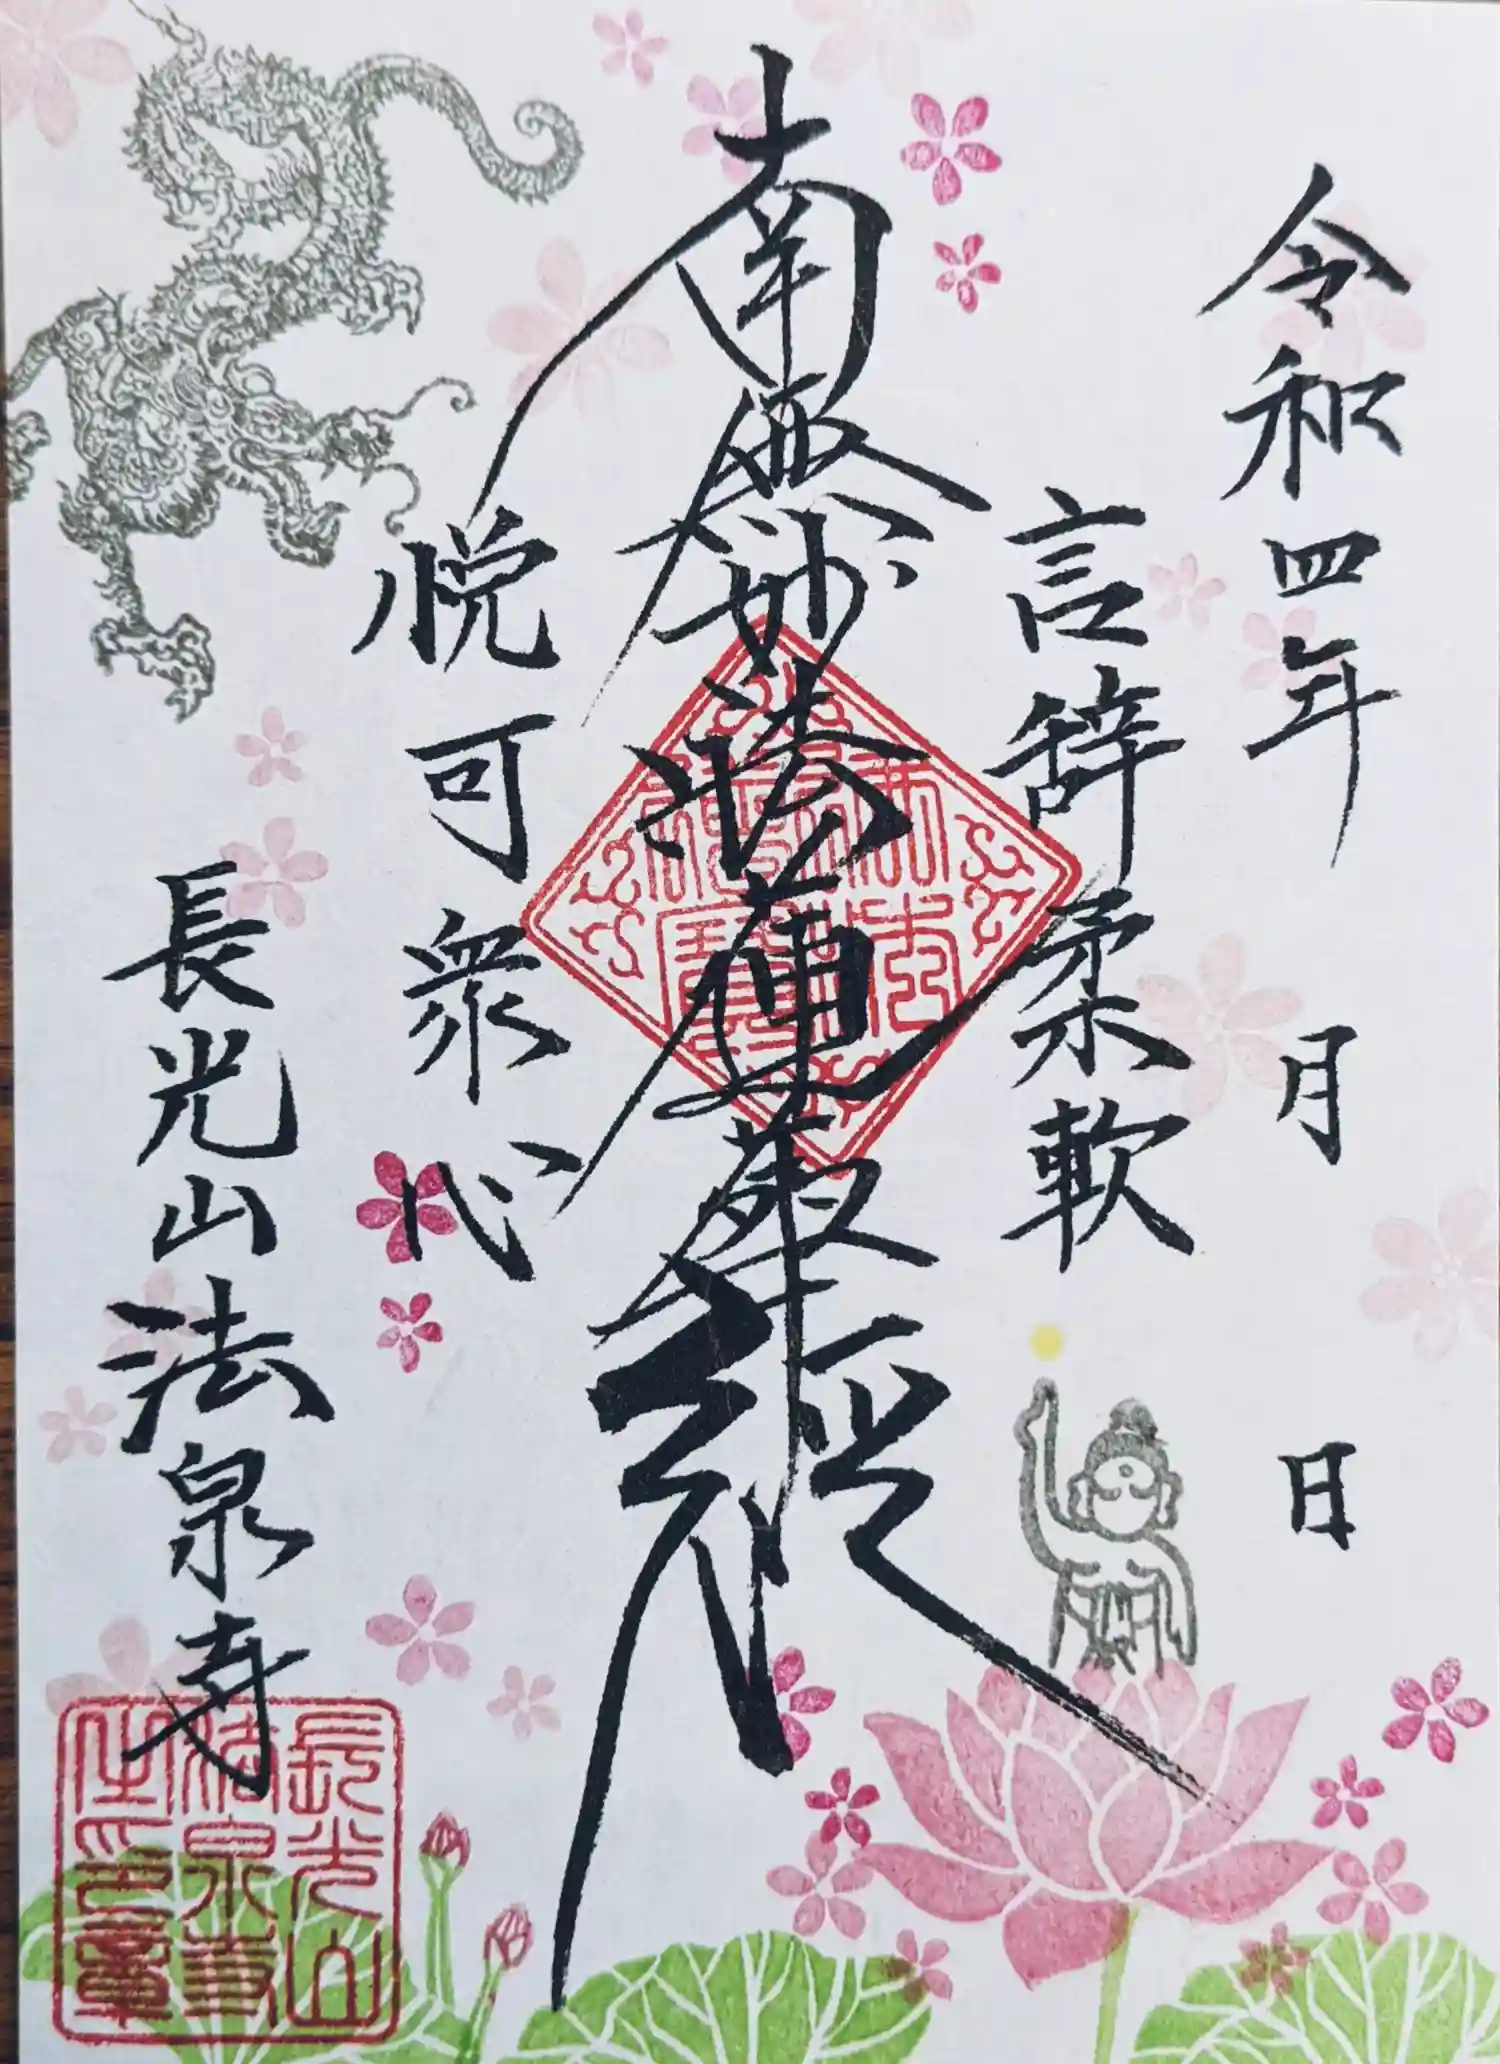 令和四年 月 日
言辞柔軟
南無妙法蓮華経
悦可衆心
長光山法泉寺
長光山
法泉寺
之印章